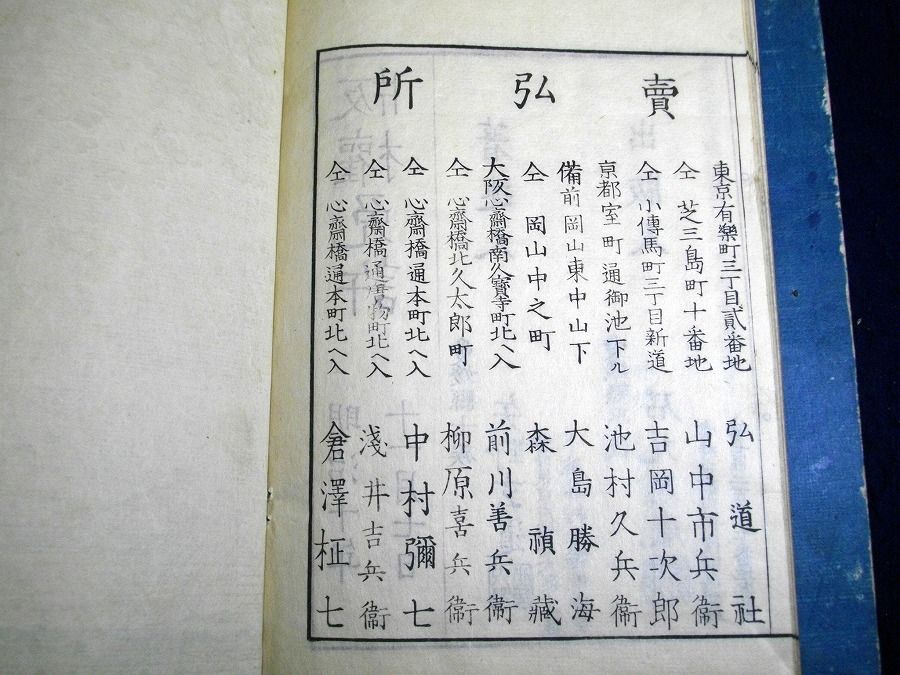 賣弘所
東京有樂町三丁目貳番地 弘道社
仝 芝三島町十番地 山中市兵衞
仝 小傳馬町三丁目新道 吉岡十次郎
京都室町通御池下ル 池村久兵衞
備前岡山東中山下 大島勝海
仝 岡山中之町 森禎藏
大阪心齋橋南久寶寺町北ヘ入 前川善兵衞
仝 心齋橋北久太郎町 柳原喜兵衞
仝 心齋橋通本町北ヘ入 中村彌七
仝 心齋橋通唐物町北ヘ入 淺井吉兵衞
仝 心齋橋通本町北ヘ入 倉澤柾七